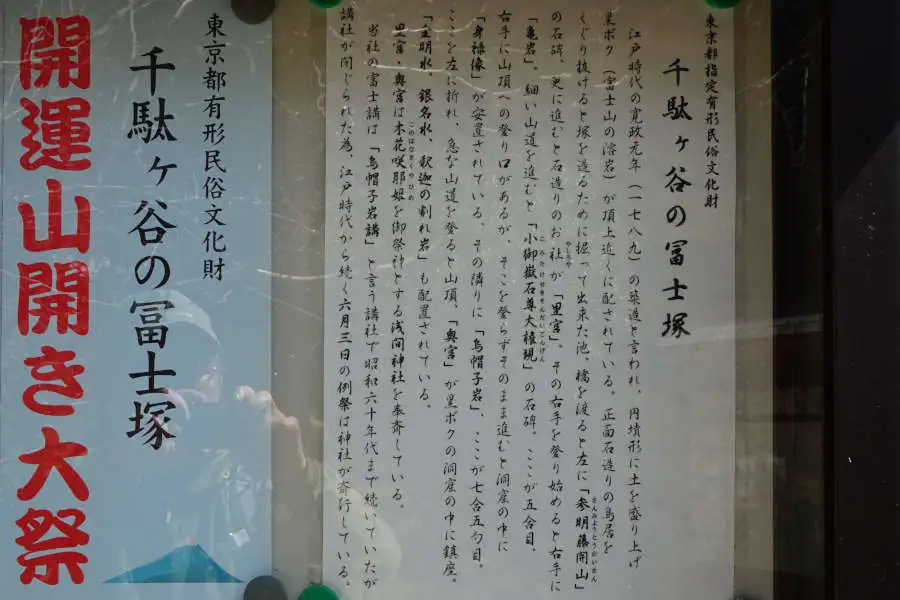 東京都指定有形民俗文化財
千駄ヶ谷の冨士塚
江戸時代の寛政元年（一七八九）の築造と言われ、円墳形に土を盛り上げ
黒ボク（富士山の溶岩）が頂上近くに配されている。正面石造りの鳥居を
くぐり抜けると塚を造るために掘って出来た池。橋を渡ると左に「参明藤開山」
さんみようとうかいさん
の石碑、更に進むと石造りのお社が「里宮」。その右手を登り始めると右手に
やしろ
「亀岩」。細い山道を進むと「小御嶽石尊大権現」の石碑。ここが五合目。
こみたけせきそんだいごんげん
右手に山頂への登り口があるが、そこを登らずそのまま進むと洞窟の中に
「身禄像」が安置されている。その隣りに「烏帽子岩」、ここが七合五勺目。
ここを左に折れ、急な山道を登ると山頂。「奥宮」が黒ボクの洞窟の中に鎮座。
「金明水、銀名水、釈迦の割れ岩」も配置されている。
里宮・奥宮は木花咲耶姫を御祭神とする浅間神社を奉斎している。
このはなさくやひめ
当社の富士講は「烏帽子岩講」と言う講社で昭和六十年代まで続いていたが
講社が閉じられた為、江戸時代から続く六月三日の例祭は神社が斎行している。
東京都有形民俗文化財
千駄ヶ谷の冨士塚
開運山開き大祭